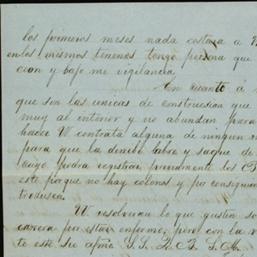 los primeros meses nada costara a V
en los mismos terrenos tengo persona que
cion y bajo mi vigilancia
En cuanto á
que son las unicas de construccion que
muy al interior y no abundan para
hacer V contrata alguna de ningun
para que la deribe labre y saque de
luego podra registrar prudentemente los
este porque no hay colonos y por consiguien
V resolvera lo que guste
carrera por estar enfermo, pero con la
este su afmo S. S. Q. B. S. M.